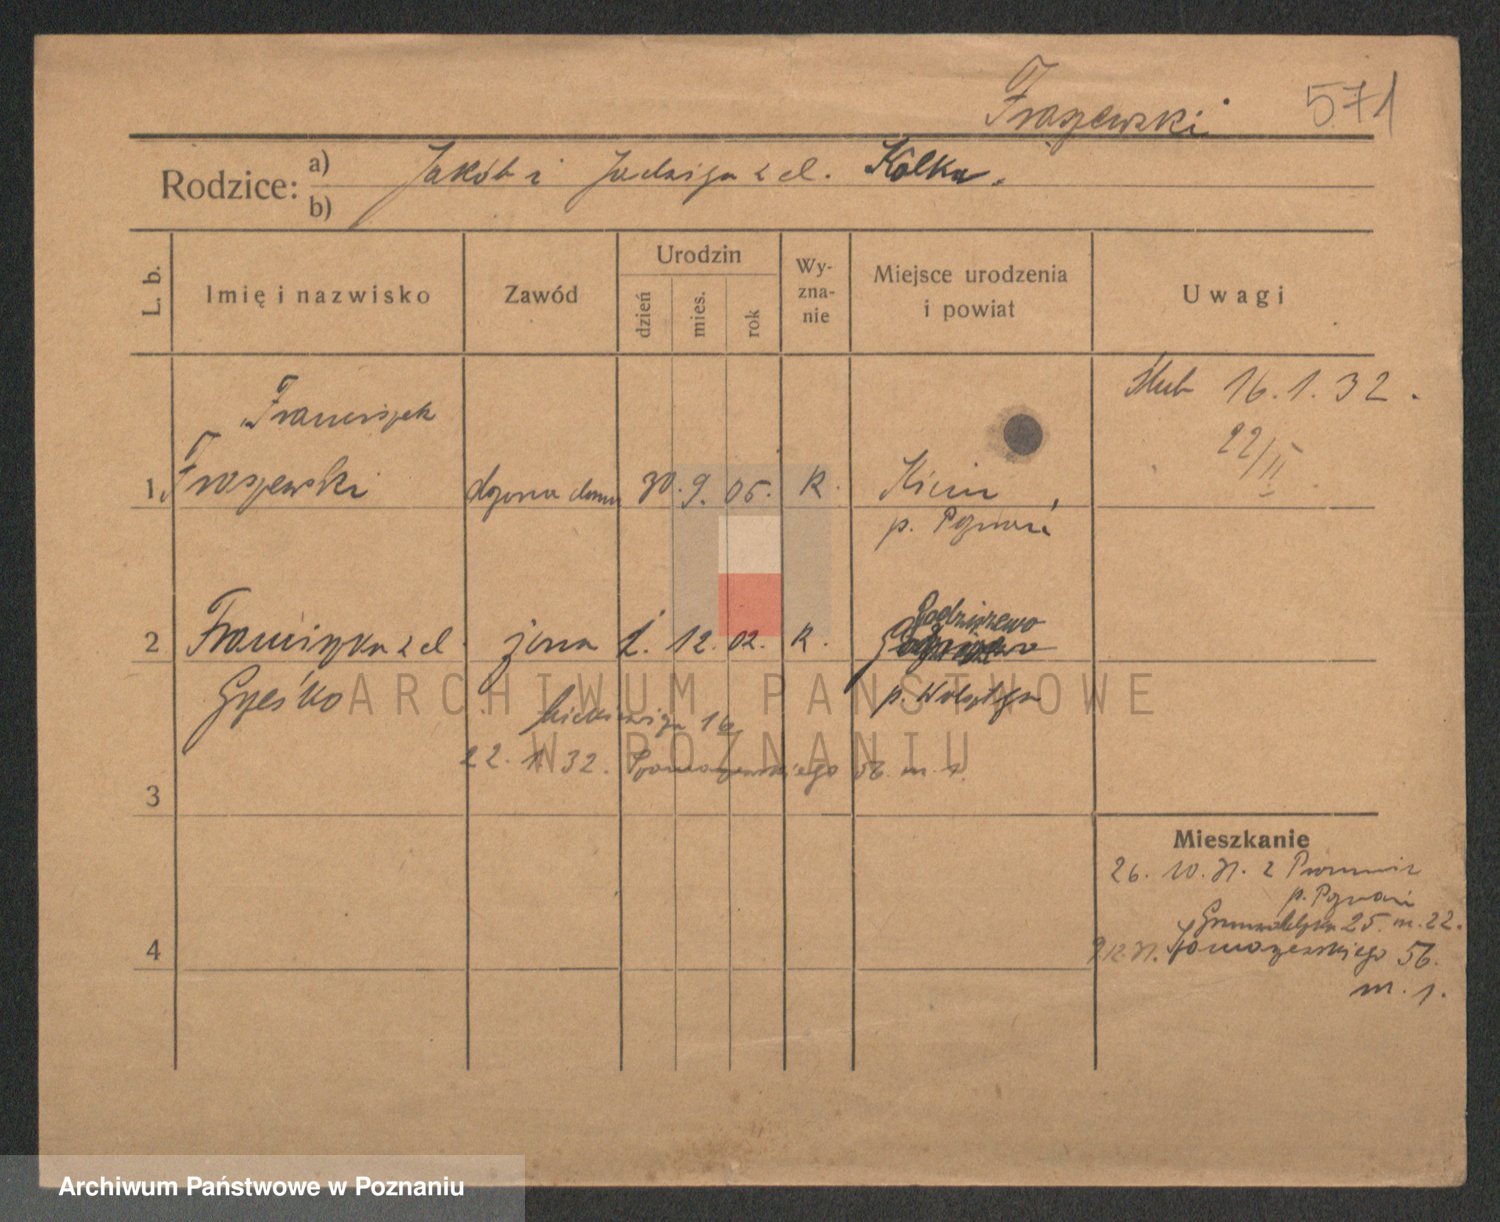 Fraszewski
571
Rodzice: a) Jakób i Jadwiga z d. Kolka.
b)
L. b.
Imię i nazwisko
Zawód
Urodzin
dzień
mies.
rok
Wy-
zna-
nie
Miejsce urodzenia
i powiat
Uwagi
Ślub 16.1.32.
22/II
Franciszek
1. Fraszewski dozorca domu 30. 9. 05. R. Kicin,
p. Poznań
Godziszewo
2 Franciszka z d. żona 1. 12. 02. R.
p. Wolsztyn
Mickiewicza 16
22. 1. 32. 56. m. 1.
3
Mieszkanie
26. 10. 31. z
p. Poznań
Grunwaldzka 25. m. 22.
4
9.12.31. 56.
m. 1.
ARCHIWUM PAŃSTWOWE
W POZNANIU
Archiwum Państwowe w Poznaniu